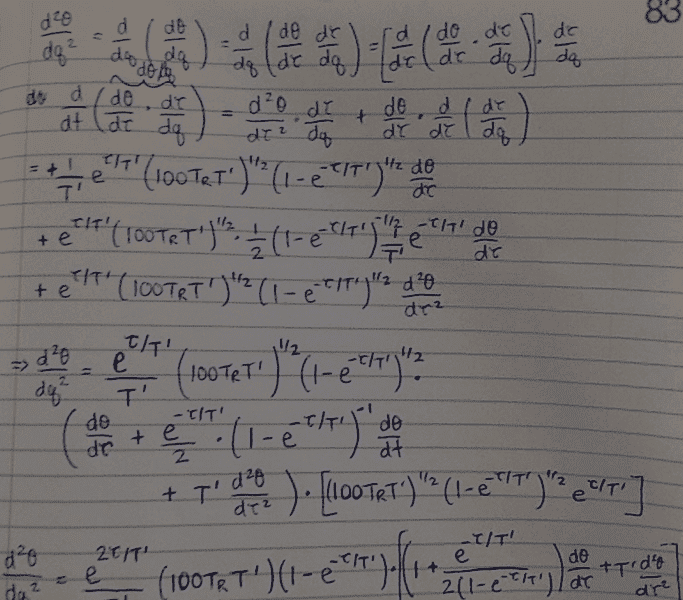 83
d²θ/dq² = d/dq (dθ/dq) = d/dq (dθ/dτ dτ/dq) = [d/dτ (dθ/dτ · dτ/dq)] · dτ/dq
dθ/dq
d/dt (dθ/dτ · dτ/dq) = d²θ/dτ² · dτ/dq + dθ/dτ · d/dτ (dτ/dq)
= + 1/T' e^(τ/T') (100T_R T')^(1/2) (1 - e^(-τ/T'))^(1/2) dθ/dτ
+ e^(τ/T') (100T_R T')^(1/2) · 1/2 (1 - e^(-τ/T'))^(-1/2) 1/T' e^(-τ/T') dθ/dτ
+ e^(τ/T') (100T_R T')^(1/2) (1 - e^(-τ/T'))^(1/2) d²θ/dτ²
⇒ d²θ/dq² = e^(τ/T')/T' (100T_R T')^(1/2) (1 - e^(-τ/T'))^(1/2) ·
(dθ/dτ + e^(-τ/T')/2 · (1 - e^(-τ/T'))^(-1) dθ/dt
+ T' d²θ/dτ²) · [(100T_R T')^(1/2) (1 - e^(-τ/T'))^(1/2) e^(τ/T')]
d²θ/dq² = e^(2τ/T')/T' (100T_R T') (1 - e^(-τ/T')) · [(1 + e^(-τ/T')/2(1 - e^(-τ/T'))) dθ/dτ + T' d²θ/dτ²]